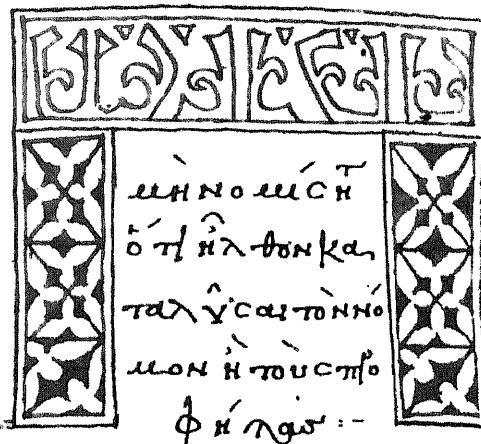 μὴ νομίσητ
ὅτι ἦλθον κα
ταλῦσαι τὸν νό
μον ἢ τοὺς προ
φήτας :-